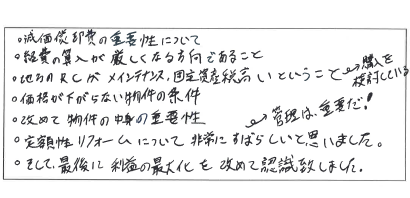 ○減価償却費の重要性について
○経費の算入が厳しくなる方向であること
○地方のRCがメインテナンス,固定資産税高いということ→購入を検討している
○価格が下がらない物件の条件
○改めて物件の中身の重要性→管理は、重要だ!
○定額性リフォームについて非常にすばらしいと思いました。
○そして、最後に利益の最大化を改めて認識致しました。